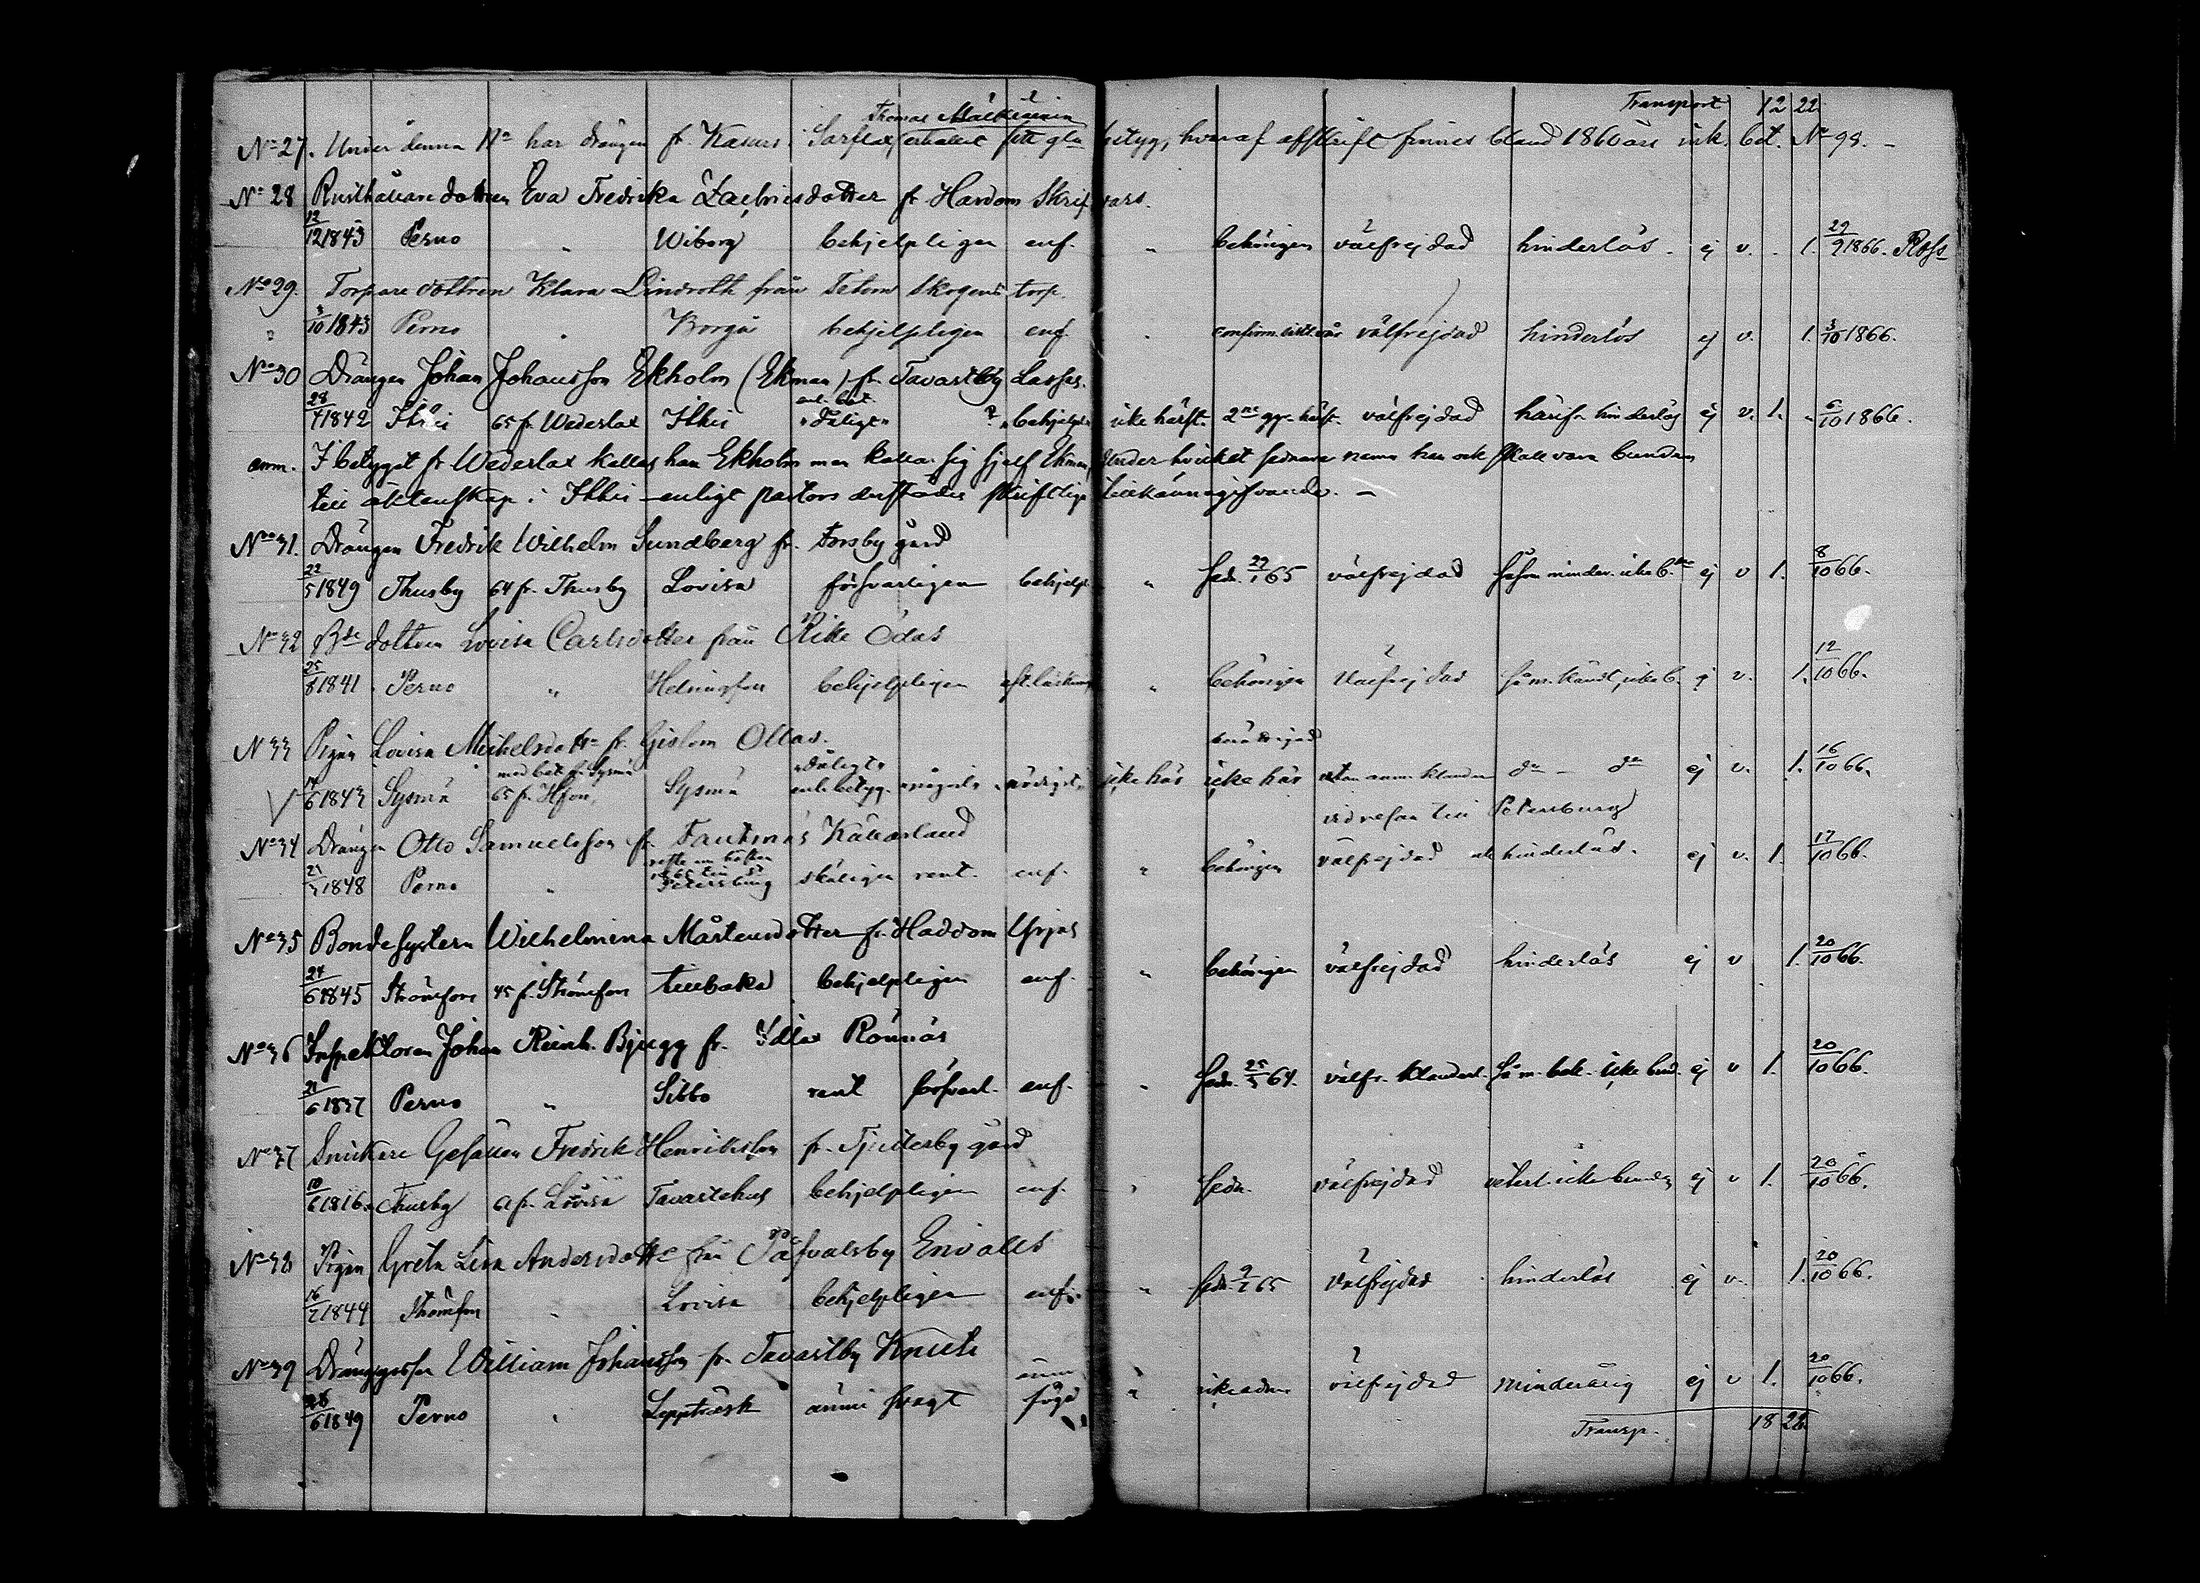 Transport 12 22
Thomas
No 27. Under denna No har drängen fr. Kasars i Sarflax erhållit sitt gla betyg, hvaraf afskrift finnes bland 1860 års ink. bet. No 98. -
No 28 Rusthållare dottren Eva Fredrika Zachrisdotter fr. Hardom Skrifvars.
12/12 1843 Perno " Wiborg behjelpligen enf. " behörigen välfrejdad hinderlös. ej v. . 1. 29/9 1866.
No 29. Torpare dottren Klara Lindroth från Tetom Skogens torp.
3/10 1843 Perno " Borgå behjelpligen enf. " välfrejdad hinderlös ej v. 1. 3/10 1866.
No 30 Drängen Johan Johansson Ekholm (Ekman) fr. Tavastby Lasses.
enl. bet.
28/4 1842 Itkis 65 fr. Wederlax Itkis "dåligt" ? "behjelpl" icke härst. välfrejdad hinderlös ej v. 1. " 6/10 1866.
anm. I betyget fr. Wederlax kallas han Ekholm men kallar sig sjelf Ekman, under hvilket sednare namn han ock skall vara bunden
till äktenskap i Itkis - enligt pastors derstädes skriftliga tillkännagifvande. -
No 31. Drängen Fredrik Wilhelm Sundberg fr. Forsby gård
22/5 1849 Thusby 64 fr. Thusby Lovisa försvarligen behjelpl " sedn. 22/1 65 välfrejdad ej v 1. 8/10 66.
No 32 Bde dottren Lovisa Carlsdotter från Rike Ödas
25/8 1841. Perno " Helsingfors behjelpligen " behörigen välfrejdad ej v. 1. 12/10 66.
No 33 Pigan Lovisa Michelsdottr fr. Gislom Ollas.
med bet. fr. Sysmä "dåligt"
14/6 1843 Sysmä 65 fr. Hfors, Sysmä enl. betyg. "någorl" "nödigt" icke här icke här utan anm. klander do - do ej v. 1. 16/10 66.
vid resan till Petersburg
No 34 Drängen Otto Samuelsson fr. Fantsnäs Källarland
21/3 1848 Perno " Petersburg skäligen rent. enf. " behörigen välfrejdad hinderlös. ej v. 1. 17/10 66.
No 35 Bondesystern Wilhelmina Mårtensdotter fr. Haddom Ufrjas
24/6 1845 Strömfors 45 fr. Strömfors tillbaka behjelpligen enf. " behörigen välfrejdad hinderlös ej v 1. 20/10 66.
No 36 Inspektoren Johan Reinh. Bjugg fr. Idlax Rönnäs
21/6 1837 Perno " Sibbo rent försvarl. enf. " sedn. 25/5 64. välfr. klanderl. så m. bek. icke bund. ej v 1. 20/10 66.
No 37 Snickare Gesällen Fredrik Henriksson fr. Tjusterby gård
10/6 1816. Thusby 61 fr. Lovisa Tavastehus behjelpligen enf. " sedn. välfrejdad veterl. icke bunden ej v 1. 20/10 66.
No 38 Pigan Greta Lisa Andersdotter från Påfvalsby Envalls
16/2 1844 Strömfors " Lovisa behjelpligen enf. " sedn. 9/2 65 välfrejdad hinderlös ej v. 1. 20/10 66.
No 39 Drängsson William Johansson fr. Tavastby Knuts
26/6 1849 Perno " Lapptresk ännu svagt ännu föga " välfrejdad minderårig ej v 1. 20/10 66.
Transp. 18 28